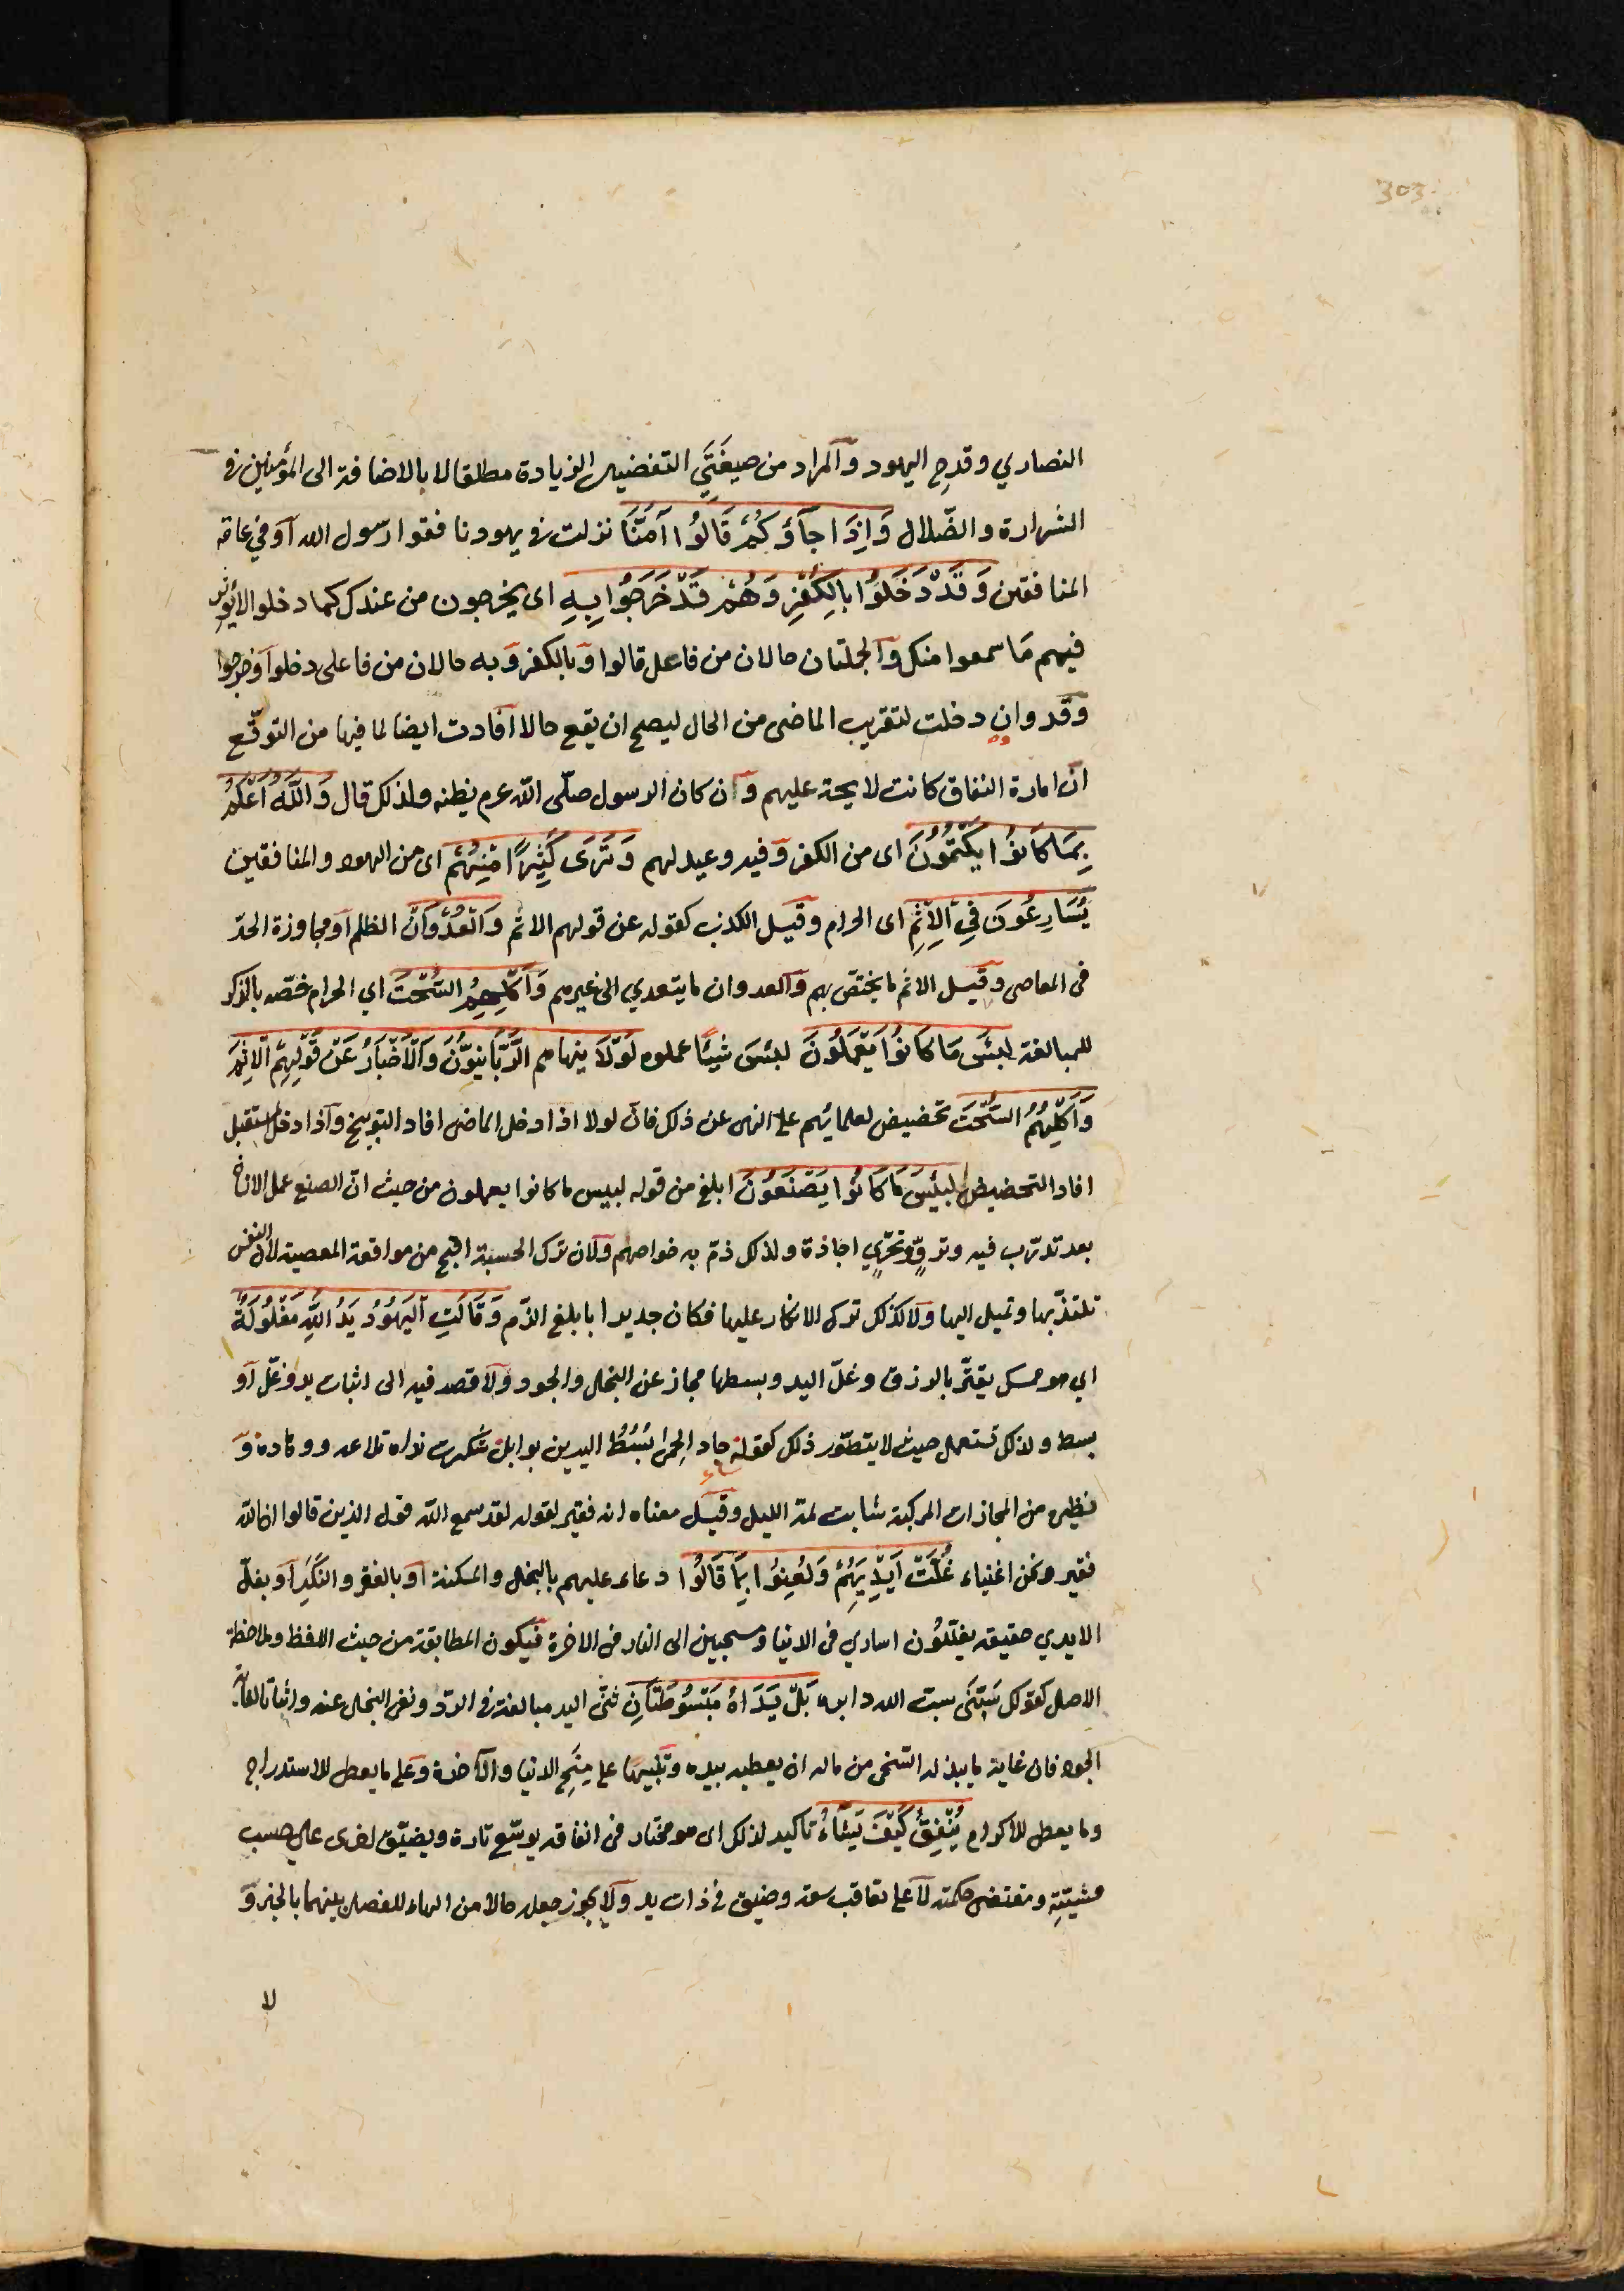 303
النصاري وقدح اليهود والمراد من صيغتَي التفضيل الزيادة مطلقا لا بالاضافة الى المؤمنين فى
الشرارة والضّلال وَاِذَا جآؤكُمْ قَالُوا آمَنَّا نزلت فى يهود نافقوا رسول الله اَو في عامّة
المنافقين وَقَدْ دَخَلُوا بِالكُفْرِ وَهُمْ قَدْ خَرَجُوا بِهِ اى يخرجون من عندك كما دخلوا لا يؤثر
فيهم مَا سمعوا منك والجملتان حالان من فاعل قالوا وَبالكفر وَبه حالان من فاعلى دخلوا وخرجوا
وقد وان دخلت لتقريب الماضى من الحال ليصح ان يقع حالا افادت ايضا لما فيها من التوقّع
انّ امارة النفاق كانت لايحة عليهم وَان كان الرسول صلّى اللّه عرم يظنه ولذلك قال وَاللّهُ اَعْلَمُ
بِمَا كَانُوا يَكْتُمُونَ اى من الكفر وَفيه وعيد لهم وَتَرَى كَثِيرًا مِنْهُمْ اى من اليهود والمنافقين
يُسَارِعُونَ فِي اْلاِثْمِ اى الحرام وقيل الكذب كقوله عن قولهم الاثم وَالْعُدْوَانِ الظلم اَو مجاوزة الحدّ
فى المعاصى وقيل الاثم ما يختصّ بهم وَالعدوان ما يتعدي الى غيرهم وَاَكْلِهِمُ السُّحْتَ اي الحرام خصّه بالذكر
للمبالغة لبئسَ مَا كَانُوا يَعْمَلُونَ لبئسَ شيئًا عملوه لَوْلَا ينهاهم الرَّبَّانِيُّونَ وَاْلاَحْبَارُ عَنْ قَوْلِهِمُ اْلاِثْمَ
وَاَكْلِهِمُ السُّحْتَ تحضيض لعلمائهم على النهى عن ذلك فانّ لولا اذا دخل الماضى افاد التوبيخ وَاذا دخل المستقبل
افاد التحضيض لبئسَ مَا كَانُوا يَصْنَعُونَ ابلغ من قوله لبيس ما كانوا يعملون من حيث انّ الصنع عمل الانسان
بعد تدرّب فيه وتروٍّ وتحرّي اجادة ولذلك ذمّ به خواصهم وَلان ترك الحسبة اقبح من مواقعة المعصية لان النفس
تلتذّ بها وتميل اليها وَلا كذلك ترك الانكار عليها فكان جديرا بابلغ الذّم وَقَالَتِ اليَهُودُ يَدُ اللّهِ مَغْلُولَةٌ
اي هو ممسك يقتّر بالرزق وغلّ اليد وبسطها مجاز عن البخل والجود وَلا قصد فيه الى اثبات يد وغلّ اَو
بسط ولذلك تستعمل حيث لا يتصّور ذلك كقوله جاد الحمى بُسُطُ اليدين بوابل شكرت نداه تلاعه ووهاده وَ
نظيره من المجازات المركبة شابت لمّة الليل وقيل معناه انه فقير لقوله لقد سمع اللّه قول الذين قالوا ان اللّه
فقير ونحن اغنياء غُلَّتْ اَيْدِيهِمْ وَلُعِنُوا بِمَا قَالُوا دعاء عليهم بالبخل والمسكنة اَو بالفقر والنكَدِ اَو بغلّ
الايدي حقيقة يغلّلُون اساري فى الدنيا ومسحبين الى النار فى الاخرة فيكون المطابقة من حيث اللفظ وملاحظة
الاصل كقولك سَبَّنى سبّ الله دابره بَلْ يَدَاهُ مَبْسُوطَتَانِ ثنّى اليد مبالغة فى الردّ ونفى البخل عنه واثباتا لغاية
الجود فان غاية ما يبذله السّخى من ماله ان يعطيه بيده وَتنبيهًا على مِنَحِ الدنيا والآخرة وَعلى ما يعطى للاستدراج
وما يعطى للاكرام يُنْفِقُ كَيْفَ يَشَاءُ تاكيد لذلك اى هو مختار فى انفاقه يوسّع تارة ويضيّق اخرى على حسب
مشيّتِه ومقتضى حكمته لَا على تعاقب سعة وضيق فى ذات يد وَلا يجوز جعله حالا من الهاء للفصل بينهما بالخبر وَ
لا